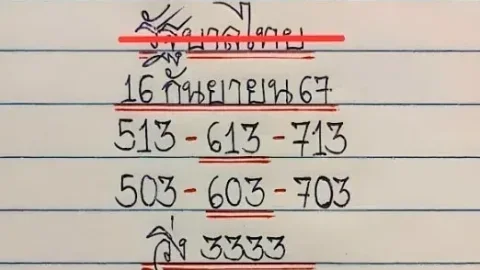 รัฐบาลไทย
16 กันยายน 67
513-613-713
503-603-703
วิ่ง 3333